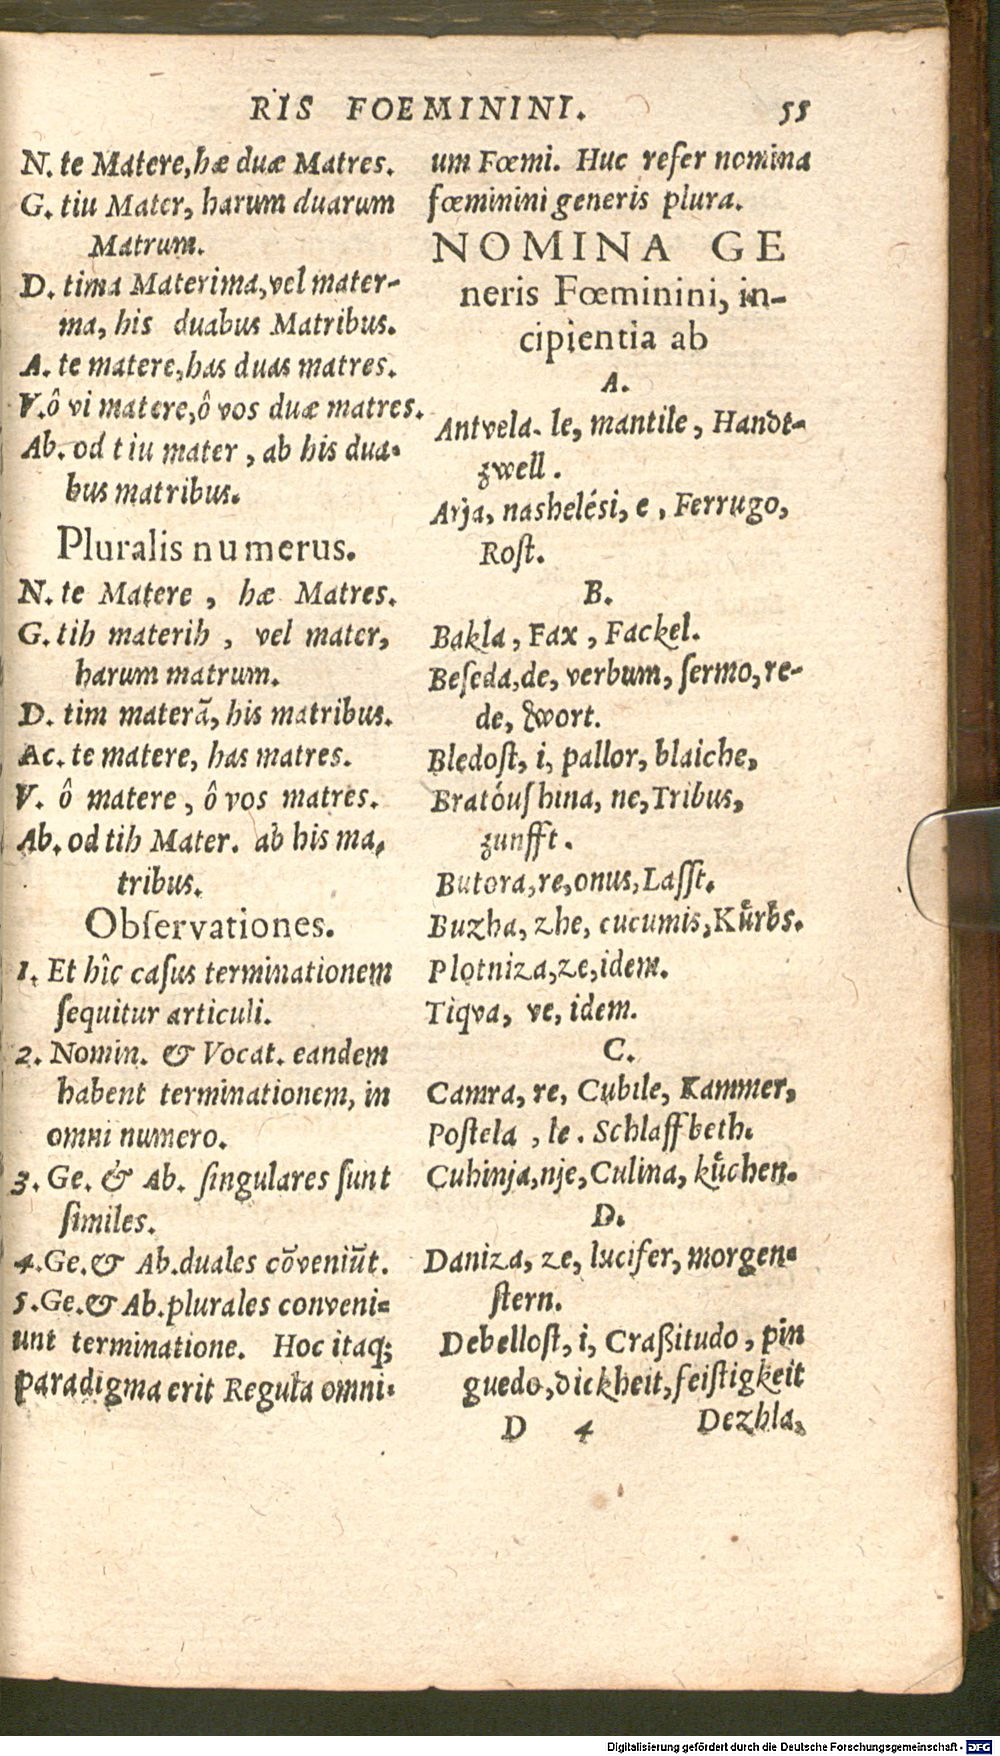 RIS FOEMININI. 55
N. te Matere, hæ duæ Matres.
G. tiu Mater, harum duarum
Matrum.
D. tima Materima, vel mater-
ma, his duabus Matribus.
A. te matere, has duas matres.
V. ô vi matere, ô vos duæ matres.
Ab. od tiu mater, ab his dua-
bus matribus.
Pluralis numerus.
N. te Matere, hæ Matres.
G. tih materih, vel mater,
harum matrum.
D. tim materã, his matribus.
Ac. te matere, has matres.
V. ô matere, ô vos matres.
Ab. od tih Mater. ab his ma,
tribus.
Obſervationes.
1. Et hîc caſus terminationem
ſequitur articuli.
2. Nomin. & Vocat. eandem
habent terminationem, in
omni numero.
3. Ge. & Ab. ſingulares ſunt
ſimiles.
4. Ge. & Ab. duales cõveniũt.
5. Ge. & Ab. plurales conveni-
unt terminatione. Hoc itaq;
paradigma erit Regula omni-
um Fœmi. Huc refer nomina
fœminini generis plura.
NOMINA GE
neris Fœminini, in-
cipientia ab
A.
Antvela. le, mantile, Handt-
zwell.
Arja, nashelési, e, Ferrugo,
Roſt.
B.
Bakla, Fax, Fackel.
Beſeda, de, verbum, ſermo, re-
de, wort.
Bledoſt, i, pallor, blaiche,
Bratóuſhina, ne, Tribus,
zunfft.
Butora, re, onus, Laſſt.
Buzha, zhe, cucumis, Kuͤrbs.
Plotniza, ze, idem.
Tiqva, ve, idem.
C.
Camra, re, Cubile, Kammer,
Poſtela, le. Schlaffbeth.
Cuhinja, nje, Culina, kuͤchen.
D.
Daniza, ze, lucifer, morgen-
ſtern.
Debelloſt, i, Craßitudo, pin
guedo, dickheit, feiſtigkeit
D 4 Dezhla,
Digitalisierung gefördert durch die Deutsche Forschungsgemeinschaft - DFG